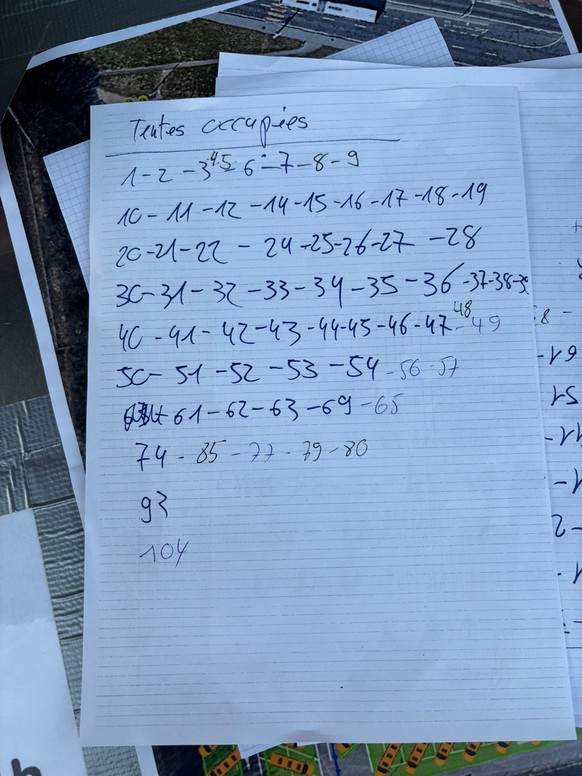 Tentes occupées
1-2-3-4-5-6-7-8-9
10-11-12-14-15-16-17-18-19
20-21-22-24-25-26-27-28
30-31-32-33-34-35-36-37-38-39
40-41-42-43-44-45-46-47-48-49
50-51-52-53-54-56-57
61-62-63-69-65
74-85-77-79-80
93
104